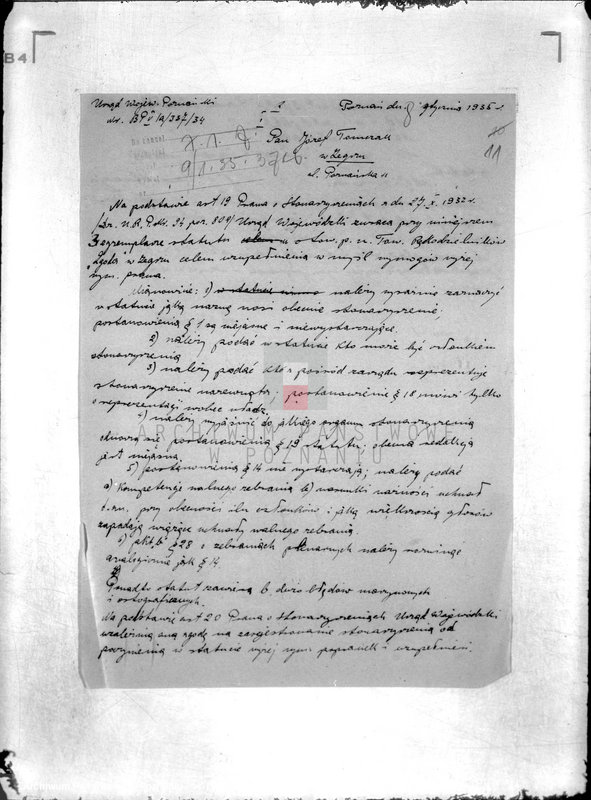 B4
Urząd Wojew. Poznański
Poznań dn. 8 stycznia 1935 r.
nr. BPV 1a/337/34
10
11
7. 1. 8
9/1. 35. 376.
Pan Józef Tomczak
w Żegrzu
ul. Poznańska 11
Na podstawie art 19 Prawa o Stowarzyszeniach z dn 27.X.1932 r.
/Dz. U.R.P. Nr. 94 poz. 809/ Urząd Wojewódzki zwraca przy niniejszem
3 egzemplarze statutu stow. p. n. Tow. Rękodzielników
Zgoda w Żegrzu celem uzupełnienia w myśl wymogów wyżej
wym. prawa.
Mianowicie: 1) w statucie należy wyraźnie zaznaczyć
w statucie jaką nazwę nosi obecnie stowarzyszenie;
postanowienia § 1 są niejasne i niewystarczające.
2) należy podać w statucie kto może być członkiem
stowarzyszenia
3) należy podać kto z pośród zarządu reprezentuje
stowarzyszenie nazewnątrz; postanowienie § 18 mówi tylko
o reprezentacji wobec władz.
4) należy wyjaśnić do jakiego organu stowarzyszenia
odnoszą się postanowienia § 19 statutu, obecna redakcja
jest niejasna.
5) postanowienia § 14 nie wystarczają; należy podać
a) kompetencje walnego zebrania b) warunki ważności uchwał
t. zn. przy obecności ilu członków i jaką większością głosów
zapadają wiążące uchwały walnego zebrania.
6) § 28 o zebraniach plenarnych należy
analogicznie jak § 14.
Ponadto statut zawiera b. dużo błędów maszynowych
i ortograficznych.
Na podstawie art 20 Prawa o Stowarzyszeniach Urząd Wojewódzki
uzależnia swą zgodę na zarejestrowanie stowarzyszenia od
poczynienia w statucie wyżej wym. poprawek i uzupełnień.
ARCHIWUM PAŃSTWOWE
W POZNANIU